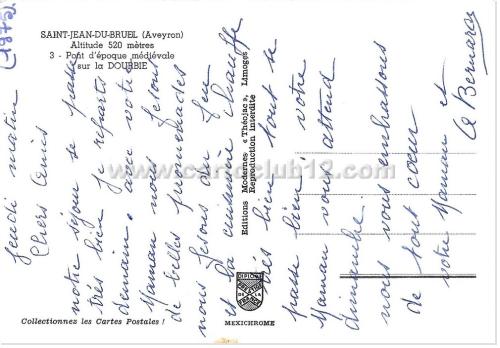 (1975)
SAINT-JEAN-DU-BRUEL (Aveyron)
Altitude 520 mètres
3 - Pont d'époque médiévale
sur la DOURBIE
Jeudi matin
Chers Amis
notre séjour se passe
très bien, je repartis
demain, avec votre
Maman nous faisons
de belles promenades
nous fesons du feu
et la cuisinière chauffe
très bien tout se
passe bien, votre
Maman vous attend
dimanche
nous vous embrassons
de tout cœur
votre Maman et
Bernard
Editions Modernes « Théojac », Limoges
Reproduction interdite
www.cartoclub12.com
DIPLOME
Collectionnez les Cartes Postales !
MEXICHROME